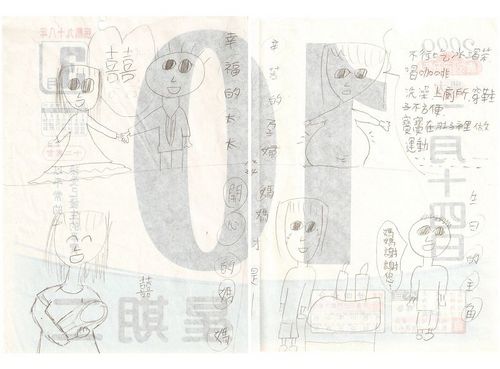 囍
幸福的太太
辛苦的孕婦
不行吃冰、喝茶
洗澡、上廁所、穿鞋
子不方便
寶寶在肚子裡做
運動
開心的媽媽
媽媽才是
生日的主角
媽媽謝謝您!
10
月十四日
星期二